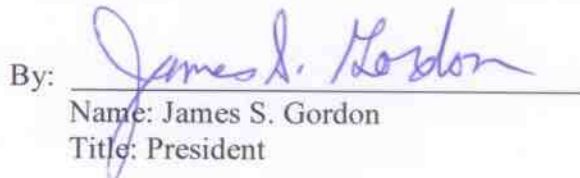 James S. Gordon
By:
Name: James S. Gordon
Title: President